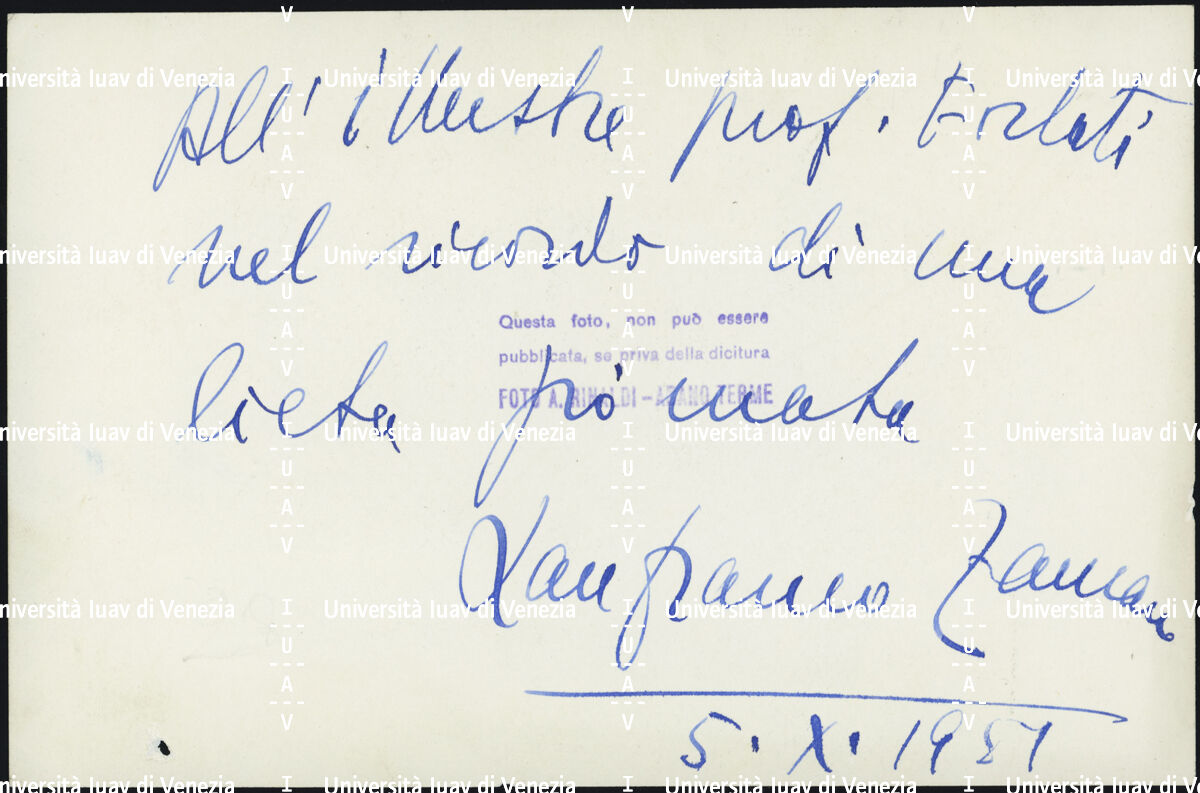 All'illustre prof. Forlati
nel ricordo di una
lieta giornata
Lanfranco
5.X.1951
Questa foto, non può essere
pubblicata, se priva della dicitura
FOTO A. RINALDI - ABANO TERME
Università Iuav di Venezia
IUAV